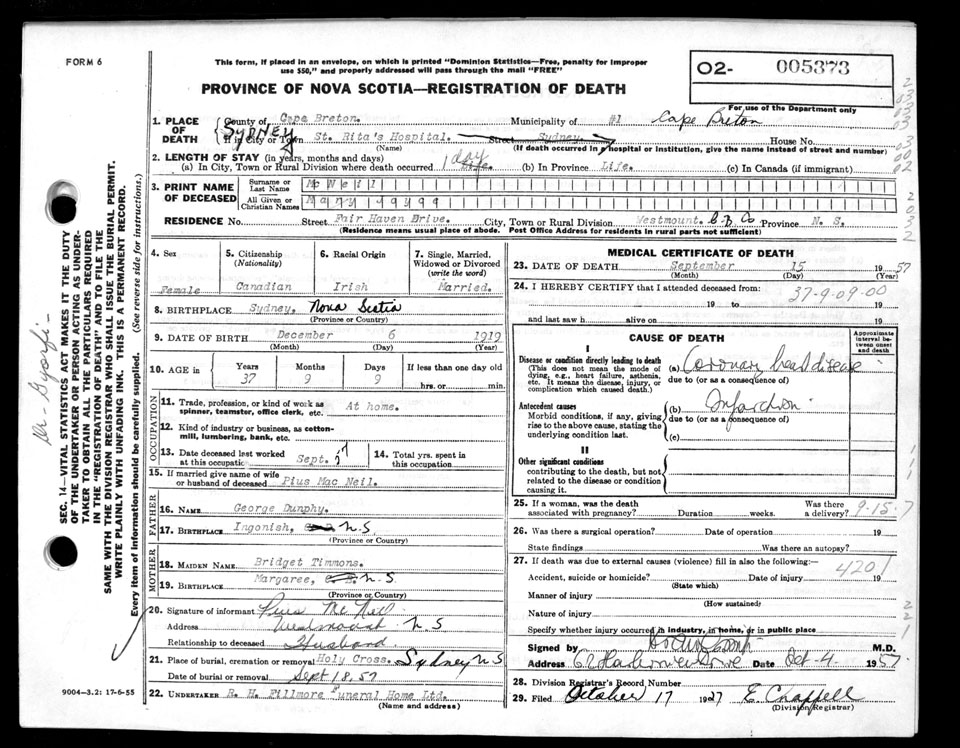 FORM 6
This form, if placed in an envelope, on which is printed "Dominion Statistics—Free, penalty for improper
use $50," and properly addressed will pass through the mail "FREE"
O2- 005373
For use of the Department only
PROVINCE OF NOVA SCOTIA—REGISTRATION OF DEATH
1. PLACE OF DEATH
County of Cape Breton. Municipality of #1 Cape Breton
SYDNEY If in City or Town St. Rita's Hospital. Street Sydney House No.
(Name) (If death occurred in hospital or institution, give the name instead of street and number)
2. LENGTH OF STAY (in years, months and days)
(a) In City, Town or Rural Division where death occurred 1 day (b) In Province Life. (c) In Canada (if immigrant)
3. PRINT NAME OF DECEASED
Surname or Last Name McNeil
All Given or Christian Names Mary Agnes
RESIDENCE No. Street Fair Haven Drive. City, Town or Rural Division Westmount. C.B Co Province N. S.
(Residence means usual place of abode. Post Office Address for residents in rural parts not sufficient)
4. Sex Female
5. Citizenship (Nationality) Canadian
6. Racial Origin Irish
7. Single, Married, Widowed or Divorced (write the word) Married.
8. BIRTHPLACE Sydney, Nova Scotia
(Province or Country)
9. DATE OF BIRTH December 6 1919
(Month) (Day) (Year)
10. AGE in Years Months Days If less than one day old
37 9 9 hrs. or min.
OCCUPATION
11. Trade, profession, or kind of work as spinner, teamster, office clerk, etc. At home.
12. Kind of industry or business, as cotton-mill, lumbering, bank, etc.
13. Date deceased last worked at this occupation Sept.
14. Total yrs. spent in this occupation
15. If married give name of wife or husband of deceased Pius Mac Neil.
FATHER
16. NAME George Dunphy.
17. BIRTHPLACE Ingonish, N.S
(Province or Country)
MOTHER
18. MAIDEN NAME Bridget Timmons.
19. BIRTHPLACE Margaree, N.S
(Province or Country)
20. Signature of informant Pius Mc Neil
Address Westmount N S
Relationship to deceased Husband
21. Place of burial, cremation or removal Holy Cross. Sydney N S
Date of burial or removal Sept 18, 57
22. UNDERTAKER R. H. Fillmore Funeral Home Ltd.
(Name and address)
MEDICAL CERTIFICATE OF DEATH
23. DATE OF DEATH September 15 1957
(Month) (Day) (Year)
24. I HEREBY CERTIFY that I attended deceased from: 37-9-09-00
19 to 19
and last saw h alive on 19
CAUSE OF DEATH
Approximate interval between onset and death
I
Disease or condition directly leading to death
(This does not mean the mode of dying, e.g., heart failure, asthenia, etc. It means the disease, injury, or complication which caused death.)
(a) Coronary heart disease
due to (or as a consequence of)
Antecedent causes
Morbid conditions, if any, giving rise to the above cause, stating the underlying condition last.
(b) Infarction
due to (or as a consequence of)
(c)
II
Other significant conditions
contributing to the death, but not related to the disease or condition causing it.
25. If a woman, was the death associated with pregnancy? Duration weeks. Was there a delivery? 9-15-7
26. Was there a surgical operation? Date of operation 19
State findings Was there an autopsy?
27. If death was due to external causes (violence) fill in also the following: 4201
Accident, suicide or homicide? Date of injury 19
(State which)
Manner of injury
(How sustained)
Nature of injury
Specify whether injury occurred in industry, in home, or in public place
Signed by M.D.
Address Date Oct-4 1957
28. Division Registrar's Record Number
29. Filed October 17 1957 E. Chappell
(Division Registrar)
SEC. 14—VITAL STATISTICS ACT MAKES IT THE DUTY
OF THE UNDERTAKER OR PERSON ACTING AS UNDER-
TAKER TO OBTAIN ALL THE PARTICULARS REQUIRED
IN THE "REGISTRATION OF DEATH" AND TO FILE THE
SAME WITH THE DIVISION REGISTRAR WHO SHALL ISSUE THE BURIAL PERMIT.
WRITE PLAINLY WITH UNFADING INK. THIS IS A PERMANENT RECORD.
Every item of information should be carefully supplied. (See reverse side for instructions.)
9004-3.2: 17-6-55